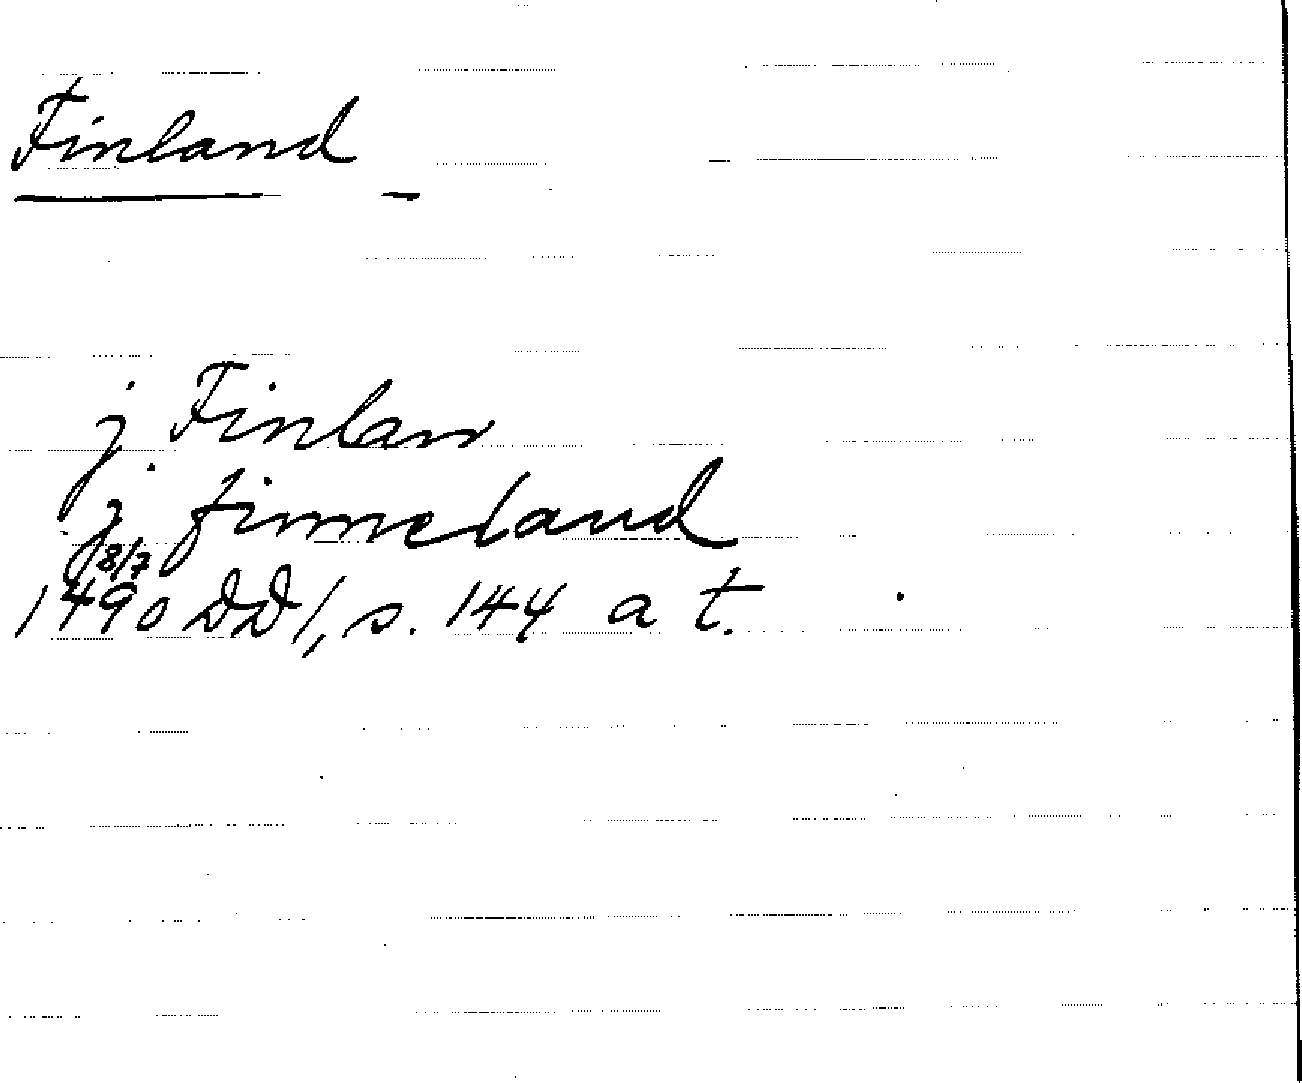 Finland
j Finlan
j finneland
8/7
1490 DD1, s. 144 a t.